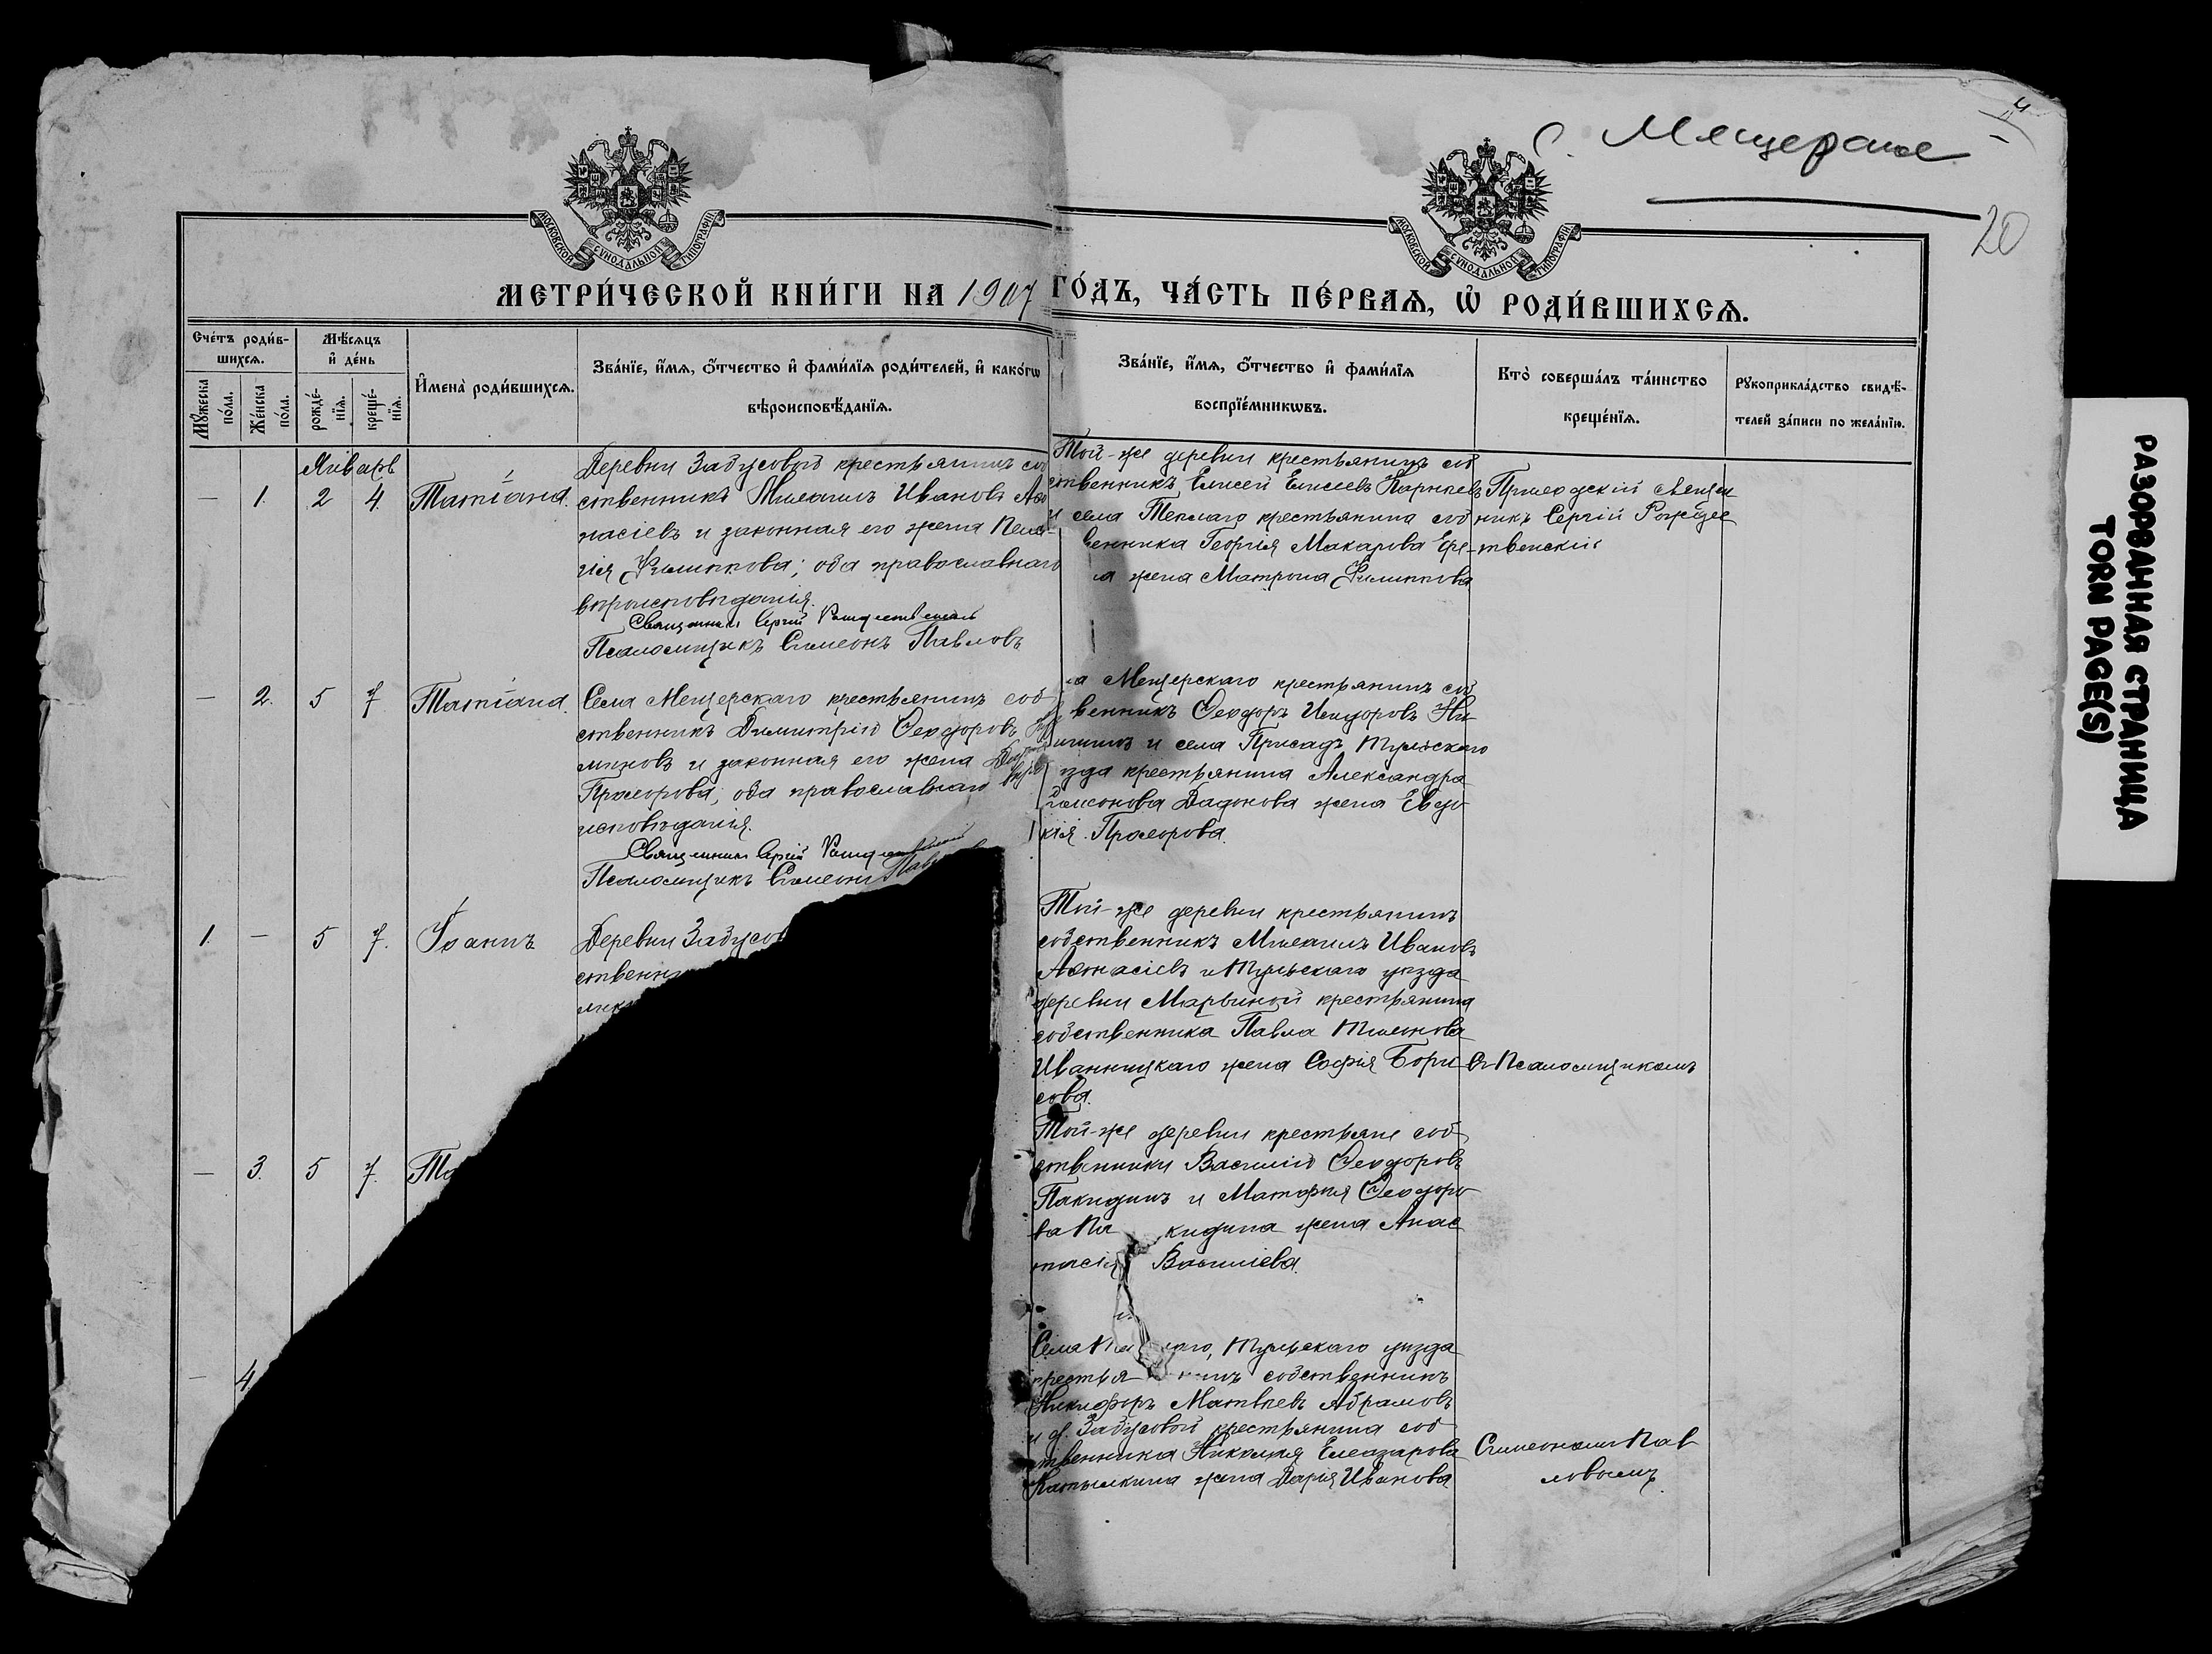 с. Мещерское
4
20
МОСКОВСКОЙ СѴНОДАЛЬНОЙ ТИПОГРАФІИ
МОСКОВСКОЙ СѴНОДАЛЬНОЙ ТИПОГРАФІИ
МЕТРИ́ЧЕСКОЙ КНИ́ГИ НА 1907 ГО́ДЪ, ЧА́СТЬ ПЕ́РВАѦ, Ѡ҆ РОДИ́ВШИХСѦ.
Сче́тъ роди́в-
шихсѧ.
Мꙋ́жеска по́ла.
Же́нска по́ла.
Мѣ́сѧцъ
и҆ де́нь
рожде́-
нїѧ.
креще́-
нїѧ.
И҆мена̀ роди́вшихсѧ.
Зва́нїе, и҆́мѧ, ѻ҆́тчество и҆ фами́лїѧ роди́телей, и҆ како́гѡ
вѣроисповѣ́данїѧ.
Зва́нїе, и҆́мѧ, ѻ҆́тчество и҆ фами́лїѧ
воспрїе́мникѡвъ.
Кто̀ соверша́лъ та́инство
креще́нїѧ.
Рꙋкоприкла́дство свидѣ́-
телей за́писи по жела́нїю.
Январь
— 1. 2 4. Татіана.
Деревни Задусовой крестьянинъ соб
ственникъ Михаилъ Ивановъ Аѳа
насіевъ и законная его жена Пела-
гія Филиппова; оба православнаго
вѣроисповѣданія.
Священникъ Сергій Рождественскій
Псаломщикъ Симеонъ Павловъ
Той-же деревни крестьянинъ соб
ственникъ Елисей Елисеевъ
и села Теплаго крестьянина соб
венника Георгія Макарова
жена Матрона Филиппова
Приходскій священ
никъ Сергій Рождес
твенскій
— 2. 5 7 Татіана.
Села Мещерскаго крестьянинъ соб
ственникъ Димитрій Ѳеодоровъ
и законная его жена
Прохорова; оба православнаго вѣро
исповѣданія.
Священникъ Сергій Рождественскій
Псаломщикъ Симеонъ Пав
а Мещерскаго крестьянинъ соб
венникъ Ѳеодоръ Исидоровъ
и села Присадъ Тульскаго
ѣзда крестьянина Александра
жена Евдо
кія Прохорова.
1. — 5 7. Іоаннъ
Деревни Задусов
ственни
Той-же деревни крестьянинъ
собственникъ Михаилъ Ивановъ
Аѳанасіевъ и Тульскаго уѣзда
деревни Марьиной крестьянина
собственника Павла Тихонова
Иванницкаго жена Софія Бори
сова.
Съ Псаломщикомъ
— 3. 5 7. Та
Той-же деревни крестьяне соб
ственники Василій Ѳеодоровъ
Панкидинъ и Матѳія Ѳеодоро
ва Па кидина жена Анас
тасія Василіева.
— 4.
Села аго, Тульскаго уѣзда
крестья нинъ собственникъ
Никифоръ Матвѣевъ Абрамовъ
и д. Задусовой крестьянина соб
ственника Николая Елеазарова
Катылкина жена Дарія Иванова
Симеономъ Пав
ловымъ.
РАЗОРВАННАЯ СТРАНИЦА
TORN PAGE(S)